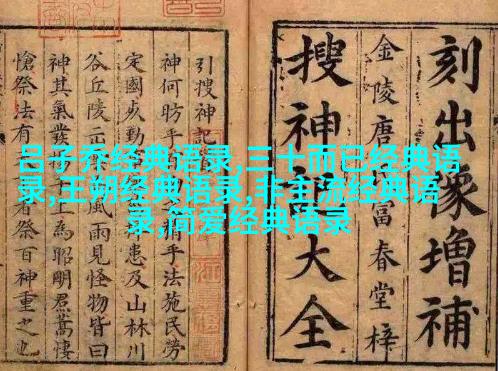 吕子乔经典语录,三十而已经典语
录,王朔经典语录,非主流经典语
录,简爱经典语录
刻出像增補
金陵唐富春堂梓
搜神大全
引搜神記
神何昉乎手法施民勞
定國勤患及山林川
谷丘陵示風雨見怪物皆曰
神其氣發上為昭明焄蒿悽
愴祭法有者祭百神重之也